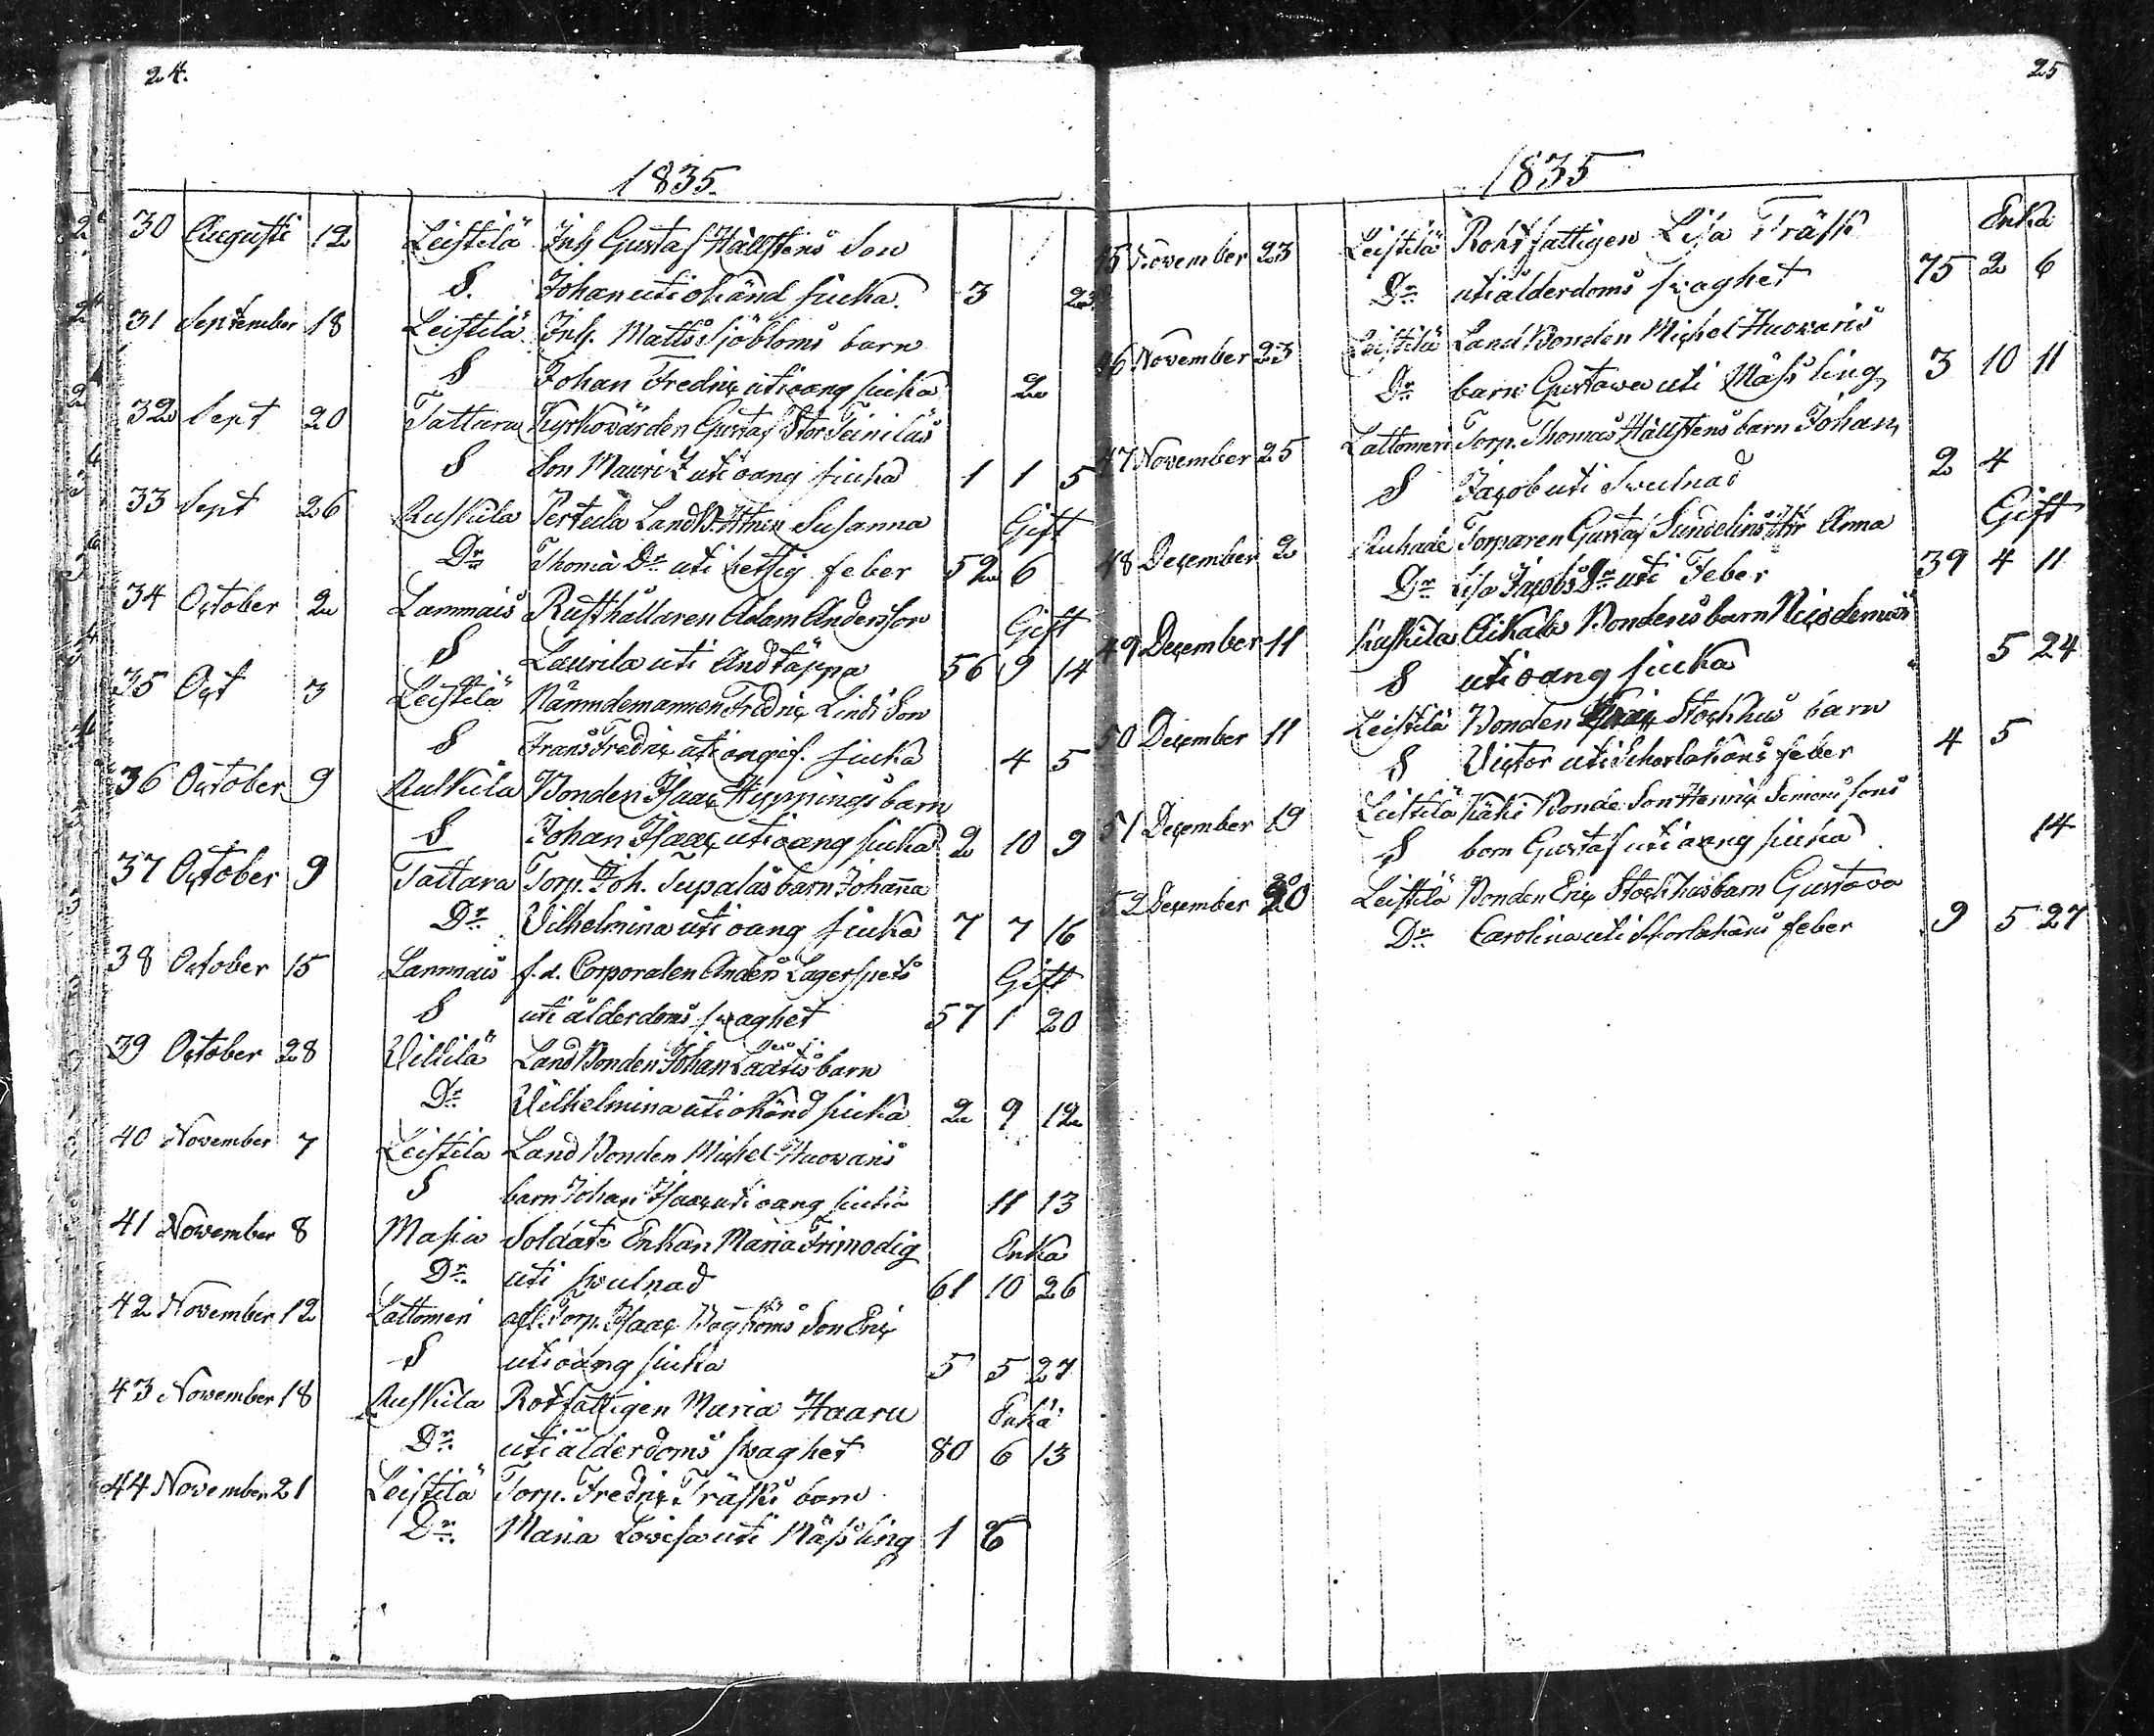 24.
1835.
30 Augusti 12 Leistilä Inh Gustaf Hällstens Son
S. Johan uti okänd siuka. 3 23
31 September 18 Leistilä Inh. Matts Sjöbloms barn
S Johan Fredric uti oang siuka 2
32 Sept 20 Tattara Kyrkovärden Gustaf Stor Teiniläs
S Son Mauritz uti oang siuka 1 1 5
33 Sept 26 Ruskila Pertula LandB. Susanna Gift
Dr Thomæ Dr uti hettsig feber 52 6
34 October 2 Lammais Rusthållaren Adam Andersson Gift
S Laurila uti Andtäppa 56 9 14
35 Oct 3 Leistilä Nämndemannen Fredric Linds Son
S Frans Fredric uti angif. siuka 4 5
36 October 9 Ruskila Bonden Isaac Hyppings barn
S Johan Isaac uti oang siuka 2 10 9
37 October 9 Tattara Torp. Joh. Tupalas barn Johanna
Dr. Vilhelmina uti oang siuka 7 7 16
38 October 15 Lammais f.d. Corporalen Anders Lagerspets Gift
S uti ålderdoms swaghet 57 1 20
39 October 28 Villilä LandBonden Johan Laatis barn
Dr Vilhelmina uti okänd siuka 2 9 12
40 November 7 Leistila Land Bonden Michel Huovaris
S barn Johan Isaac uti oang siuka 11 13
41 November 8 Masia Soldats Enkan Maria Frimodig Enka
Dr. uti swulnad 61 10 26
42 November 12 Lattomeri afl. Torp. Isaac Son Eric
S uti oang siuka 5 5 27
43 November 18 Ruskila Rotfattigen Maria Haaru Enka
Dr. uti ålderdoms swaghet 80 6 13
44 November 21 Leistilä Torp. Fredric Träsks barn
Dr. Maria Lovisa uti Mässling 1 6
25
1835
45 November 23 Leistilä Rotfattigen Lisa Träsk Enka
Dr uti ålderdoms swaghet 75 2 6
46 November 23 Leistilä Land Bonden Michel Huovaris
Dr barn Gustava uti Mässling 3 10 11
47 November 25 Lattomeri Torp. Thomas Hällstens barn Johan
S Jacob uti Swulnad 2 4
48 December 2 Ruhade Torparen Gustaf Sundelins Anna Gift
Dr Lisa Jacobs Dr uti Feber 39 4 11
49 December 11 Ruskila Aikala Bondens barn Nicodemus
S uti oang siuka 5 24
50 December 11 Leistilä Bonden Eric Stockhus barn
S Victor uti Scharlakans feber 4 5
51 December 19 Leistilä Käki Bonde Son Henric Simons sons
S barn Gustaf uti oang siuka 14
52 December 20 Leistilä Bonden Eric Stockhus barn Gustava
Dr Carolina uti Skarlakans feber 9 5 27